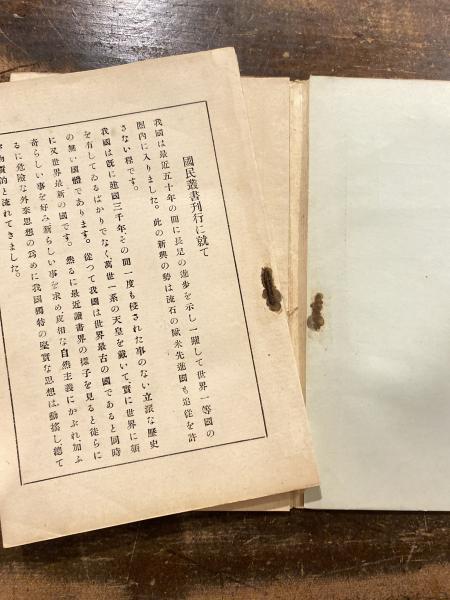 國民叢書刊行に就て
我國は最近五十年の間に長足の進步を示し一躍して世界一等國の
圏內に入りました。此の新興の勢は流石の歐米先進國も追從を許
さない程です。
我國は旣に建國三千年、その間一度も侵された事のない立派な歷史
を有してゐるばかりでなく萬世一系の天皇を戴いて、實に世界に類
の無い國體であります。從つて我國は世界最古の國であると同時
に又世界最新の國です。然るに最近讀書界の樣子を見ると徒らに
奇らしい事を好み新らしい事を求め、皮相な自然主義にかぶれ加ふ
るに危險な外來思想の爲めに我國獨特の堅實な思想は動搖し總て
物質的と流れてきました。